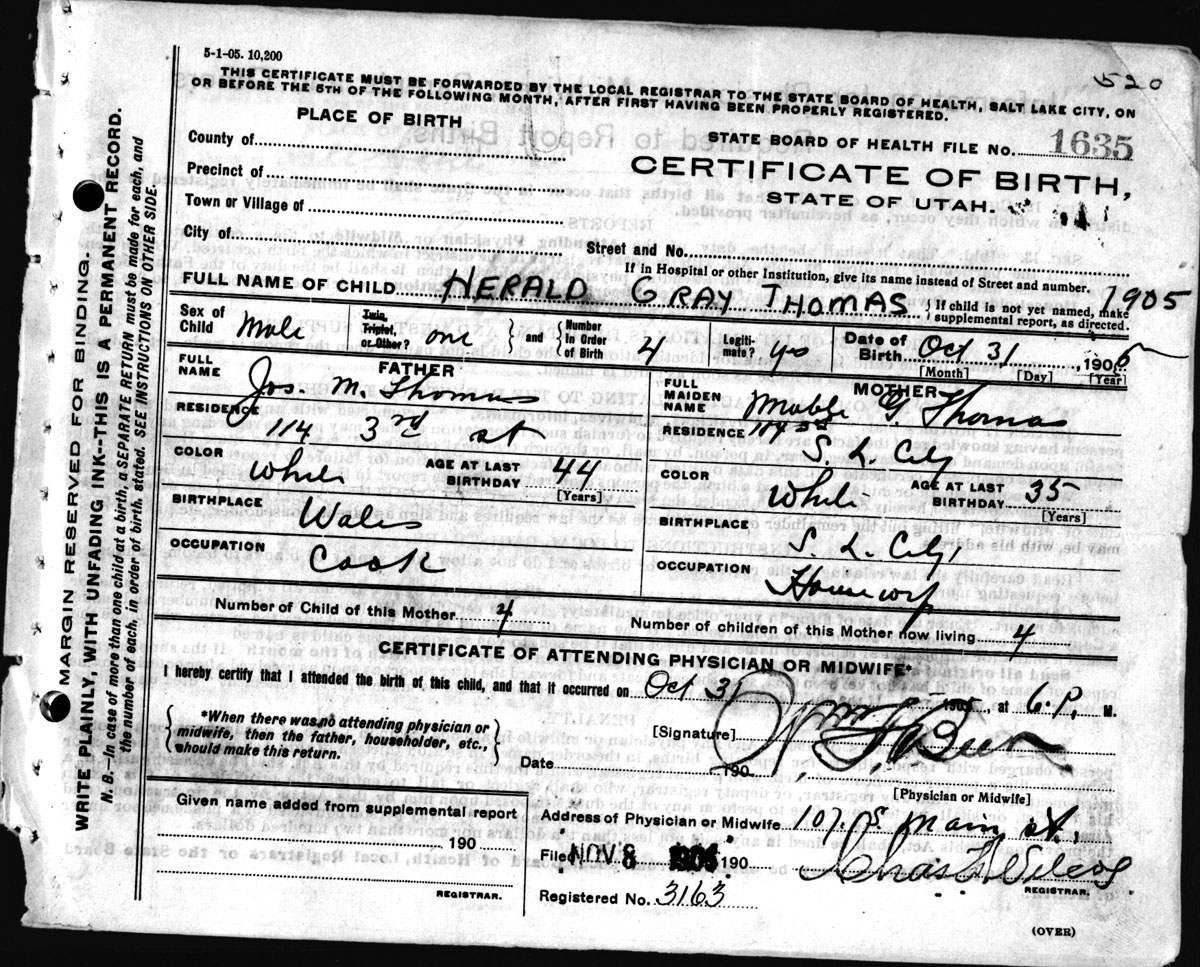 5-1-05. 10,200
520
THIS CERTIFICATE MUST BE FORWARDED BY THE LOCAL REGISTRAR TO THE STATE BOARD OF HEALTH, SALT LAKE CITY, ON
OR BEFORE THE 5TH OF THE FOLLOWING MONTH, AFTER FIRST HAVING BEEN PROPERLY REGISTERED.
PLACE OF BIRTH
County of
Precinct of
Town or Village of
City of
STATE BOARD OF HEALTH FILE No. 1635
CERTIFICATE OF BIRTH,
STATE OF UTAH.
Street and No.
If in Hospital or other Institution, give its name instead of Street and number.
FULL NAME OF CHILD HERALD GRAY THOMAS { If child is not yet named, make
supplemental report, as directed.
1905
Sex of Child Male
Twin, Triplet, or Other? one } and { Number In Order of Birth 4
Legiti- mate? yes
Date of Birth Oct 31, 1905
[Month] [Day] [Year]
FATHER
FULL NAME Jos. M. Thomas
RESIDENCE 114 3rd st
COLOR White
AGE AT LAST BIRTHDAY 44
[Years]
BIRTHPLACE Wales
OCCUPATION Cook
MOTHER
FULL MAIDEN NAME G. Thomas
RESIDENCE 114 3rd
S. L. City
COLOR White
AGE AT LAST BIRTHDAY 35
[Years]
BIRTHPLACE
S. L. City
OCCUPATION Housewife
Number of Child of this Mother 4
Number of children of this Mother now living 4
CERTIFICATE OF ATTENDING PHYSICIAN OR MIDWIFE*
I hereby certify that I attended the birth of this child, and that it occurred on Oct 31 190, at 6. P. M.
{ *When there was no attending physician or
midwife, then the father, householder, etc.,
should make this return. }
[Signature] Wm F. Beer
Date 190
[Physician or Midwife]
Given name added from supplemental report
190
REGISTRAR.
Address of Physician or Midwife 107 S. Main st,
Filed NOV 8 1905 190
Chas
REGISTRAR.
Registered No. 3163
(OVER)
MARGIN RESERVED FOR BINDING.
WRITE PLAINLY, WITH UNFADING INK--THIS IS A PERMANENT RECORD.
N. B.--In case of more than one child at a birth, a SEPARATE RETURN must be made for each, and
the number of each, in order of birth, stated. SEE INSTRUCTIONS ON OTHER SIDE.